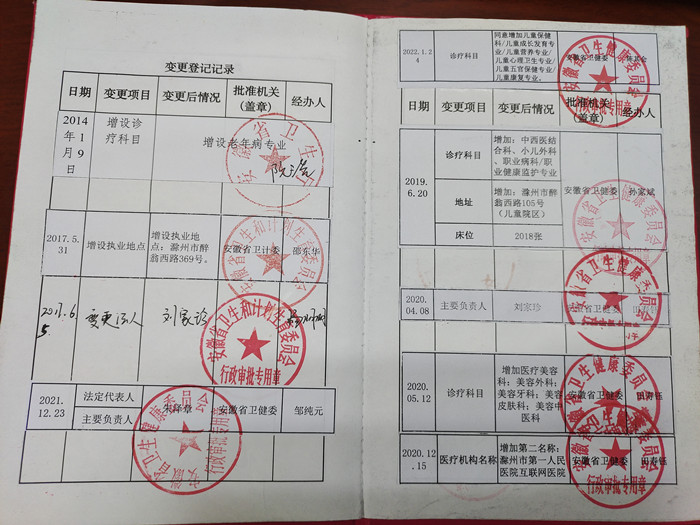 变更登记记录
日期 变更项目 变更后情况 批准机关（盖章） 经办人
2014年1月9日 增设诊疗科目 增设老年病专业
安徽省卫生
2017.5.31 增设执业地点 增设执业地点：滁州市醉翁西路369号。 安徽省卫计委 邵东华
安徽省卫生和计划生育委员会
2017.6.5 变更法人 刘家珍
安徽省卫生和计划生育委员会
行政审批专用章
2021.12.23 法定代表人
主要负责人 安徽省卫健委 邹纯元
安徽省卫生健康委员会
行政审批专用章
2022.1.24 诊疗科目 同意增加儿童保健科/儿童成长发育专业/儿童营养专业/儿童心理卫生专业/儿童五官保健专业/儿童康复专业。 安徽省卫健委
安徽省卫生健康委员会
行政审批专用章
日期 变更项目 变更后情况 批准机关（盖章） 经办人
2019.6.20 诊疗科目 增加：中西医结合科、小儿外科、职业病科/职业健康监护专业
地址 增加：滁州市醉翁西路105号（儿童院区） 安徽省卫健委 孙家斌
床位 2018张
安徽省卫生健康委员会
2020.04.08 主要负责人 刘家珍 安徽省卫健委
安徽省卫生健康委员会
2020.05.12 诊疗科目 增加医疗美容科；美容外科；美容牙科；美容皮肤科；美容中医科 安徽省卫健委 田寿钰
安徽省卫生健康委员会
2020.12.15 医疗机构名称 增加第二名称：滁州市第一人民医院互联网医院 安徽省卫健委 田寿钰
安徽省卫生健康委员会
行政审批专用章